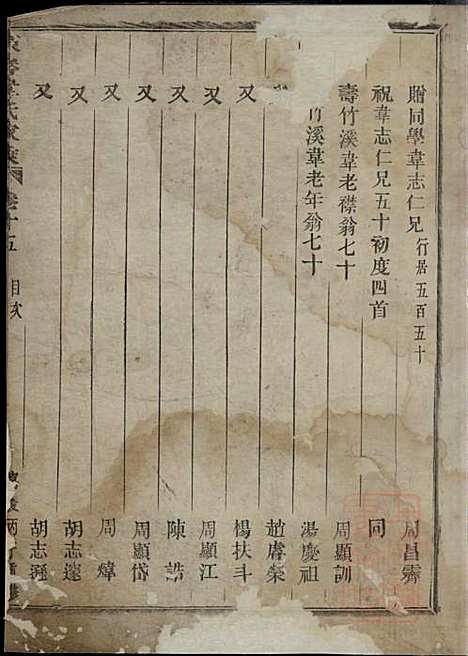 贈同學韋志仁兄 行居五百五十 周昌霽
祝韋志仁兄五十初度四首 同
壽竹溪韋老襟翁七十 周顯訓
竹溪韋老年翁七十 湯慶祖
趙膚榮
又 楊扶斗
又 周顯江
又 陳誥
又 周顯岱
又 周煒
又 胡志遠
又 胡志遜
氏家 卷十五 目次